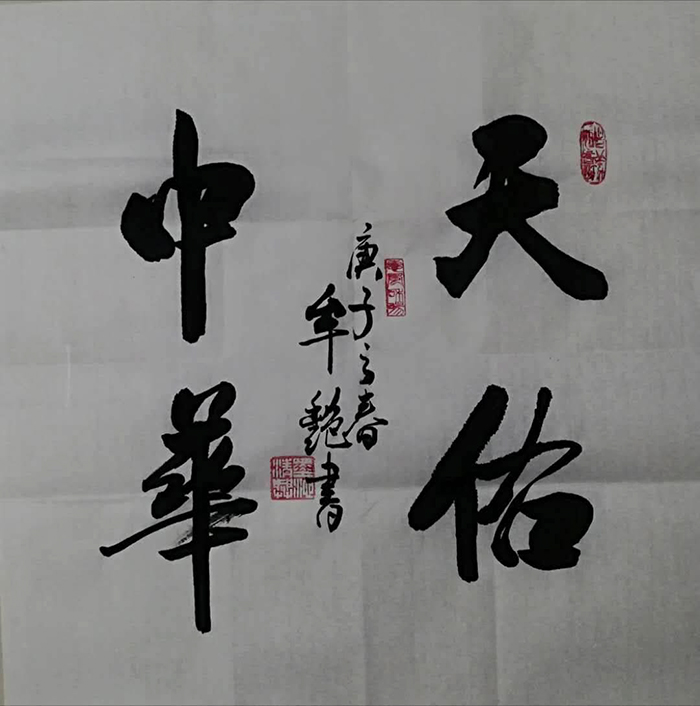 天佑
中華
庚子之春
牟艷書